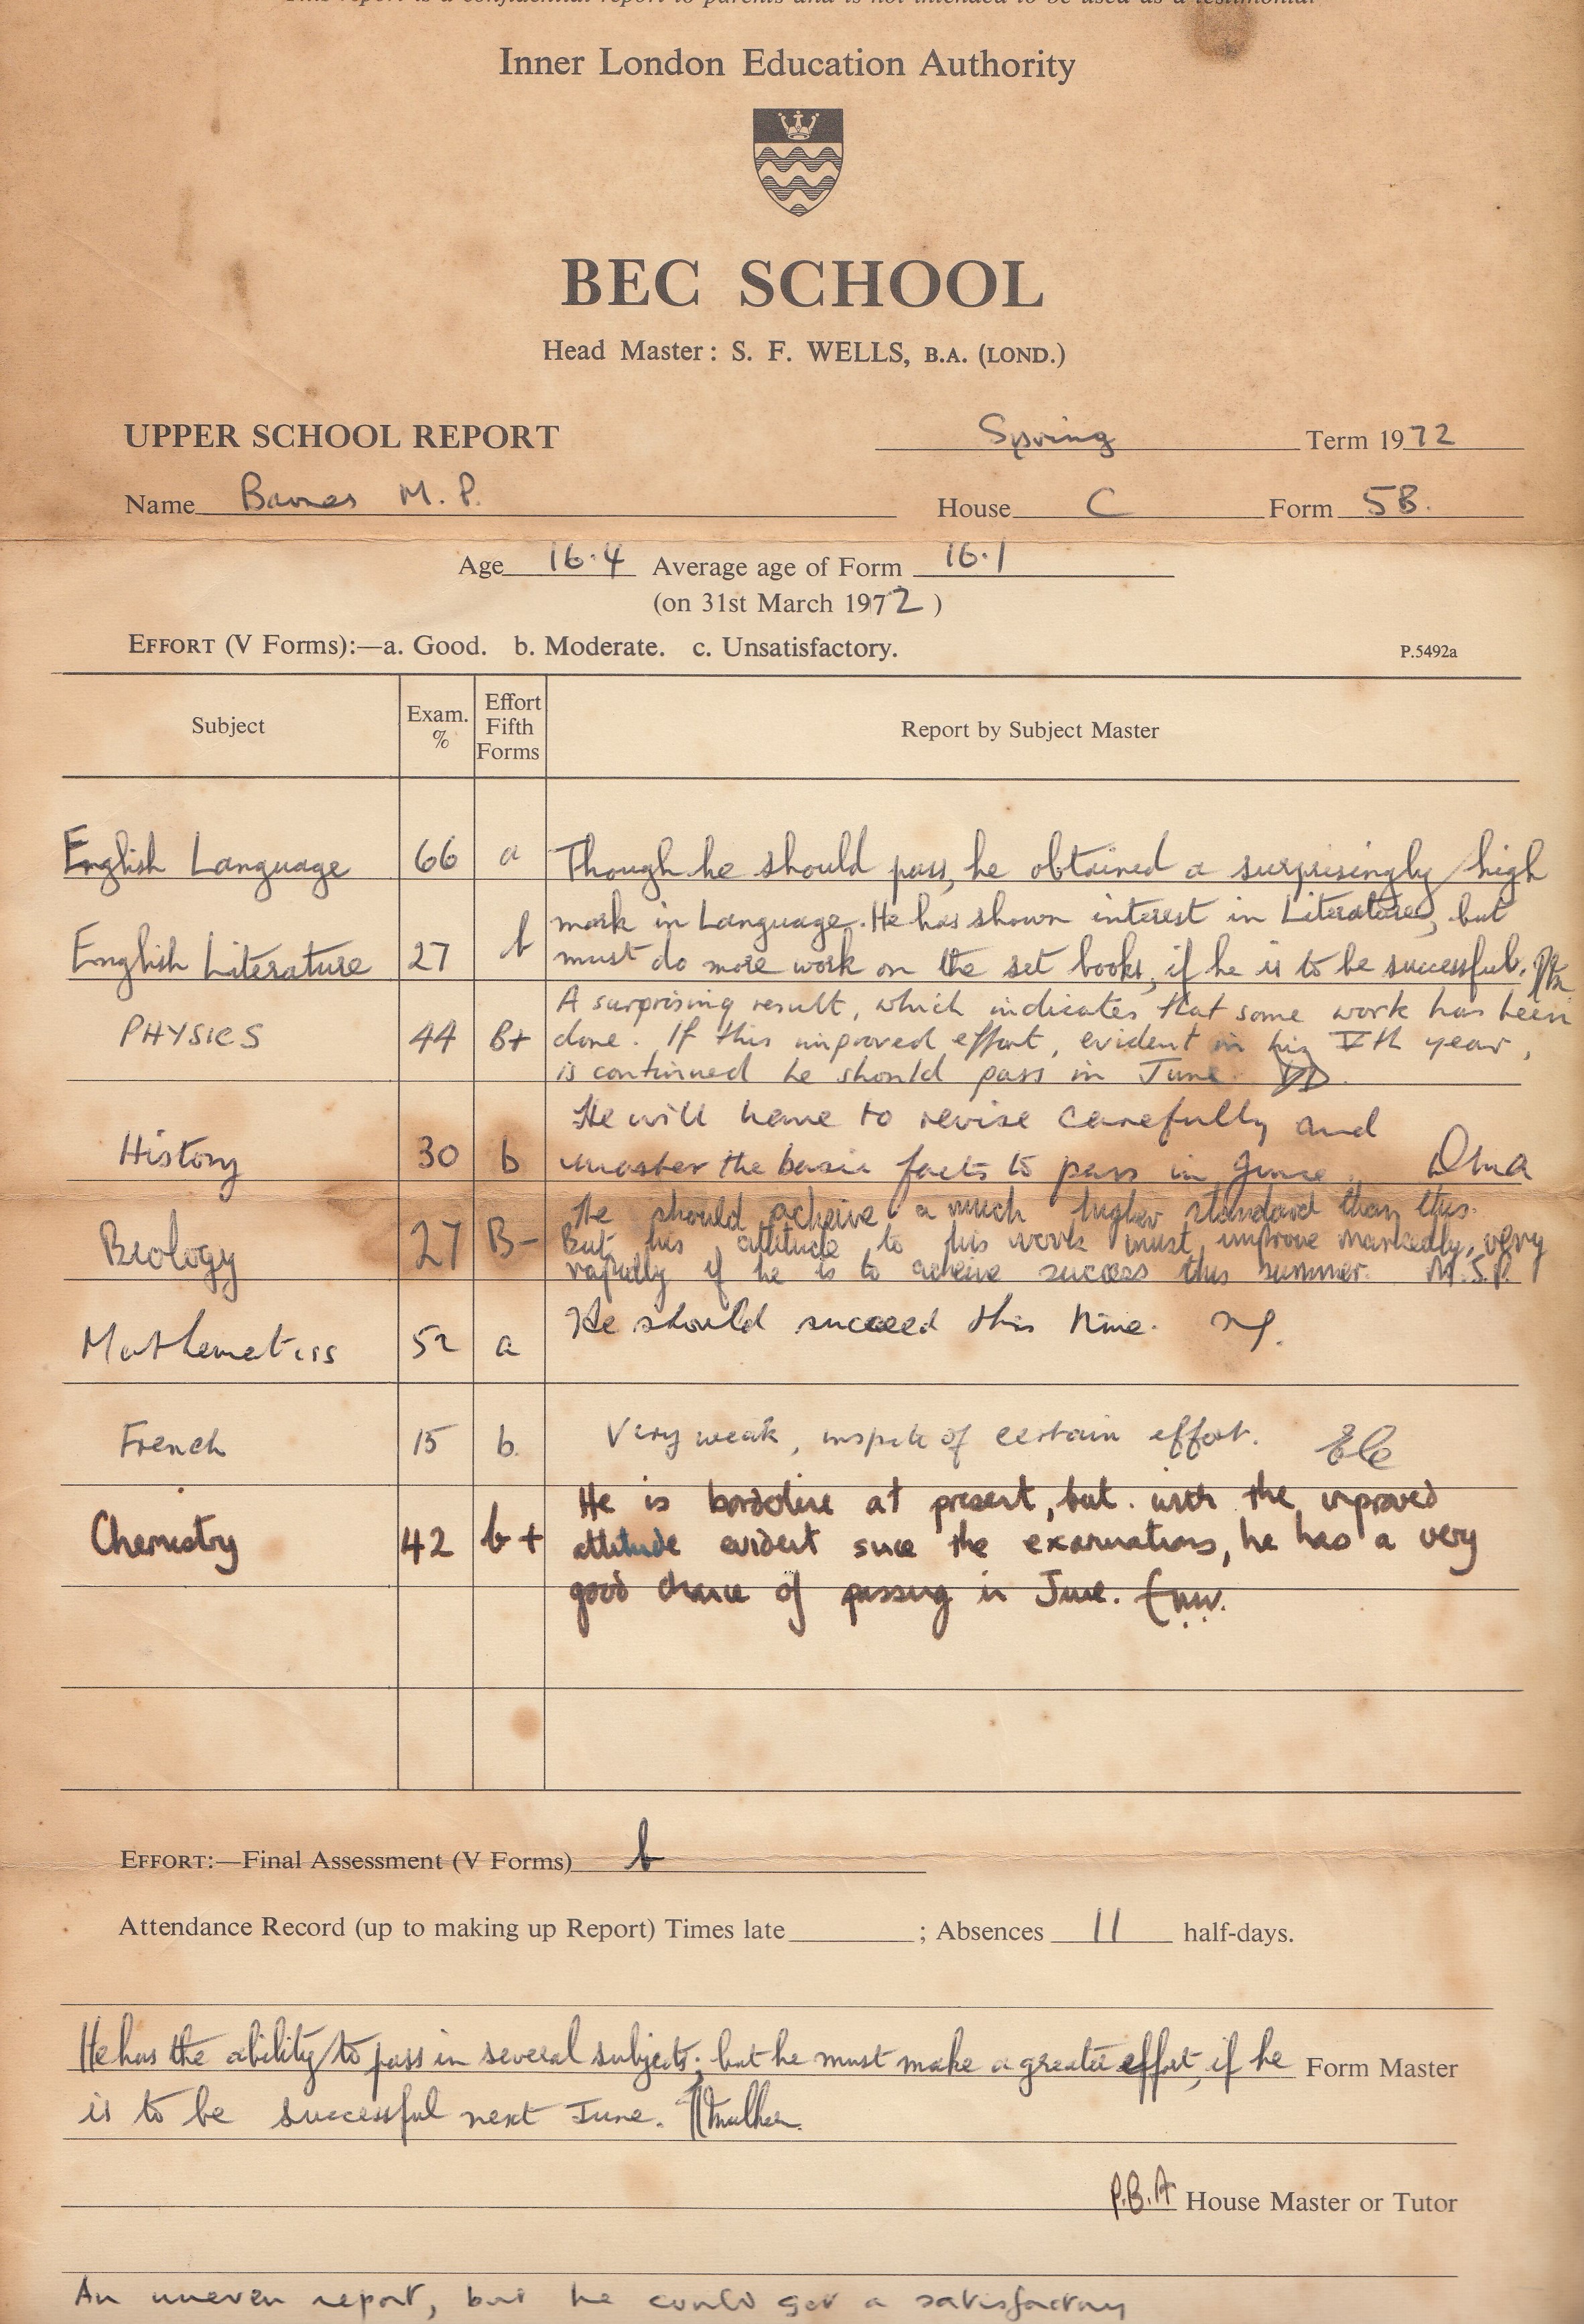 This report is a confidential report to parents and is not intended to be used as a testimonial
Inner London Education Authority
BEC SCHOOL
Head Master: S. F. WELLS, B.A. (LOND.)
UPPER SCHOOL REPORT Spring Term 1972
Name Barnes M. P. House C Form 5B.
Age 16.4 Average age of Form 16.1
(on 31st March 1972)
EFFORT (V Forms):—a. Good. b. Moderate. c. Unsatisfactory. P.5492a
Subject Exam. % Effort Fifth Forms Report by Subject Master
English Language 66 a Though he should pass, he obtained a surprisingly high
mark in Language. He has shown interest in Literature, but
English Literature 27 b must do more work on the set books, if he is to be successful.
A surprising result, which indicates that some work has been
PHYSICS 44 B+ done. If this improved effort, evident in his Vth year,
is continued he should pass in June.
He will have to revise carefully and
History 30 b master the basic facts to pass in June.
He should acheive a much higher standard than this.
Biology 27 B- But his attitude to his work must improve markedly, very
rapidly if he is to acheive success this summer. M.S.P.
He should succeed this time.
Mathematics 52 a
French 15 b. Very weak, inspite of certain effort.
He is borderline at present, but with the improved
Chemistry 42 b+ attitude evident since the examinations, he has a very
good chance of passing in June.
EFFORT:—Final Assessment (V Forms) b
Attendance Record (up to making up Report) Times late ; Absences 11 half-days.
He has the ability to pass in several subjects; but he must make a greater effort, if he Form Master
is to be successful next June.
P.B.A House Master or Tutor
An uneven report, but he could get a satisfactory